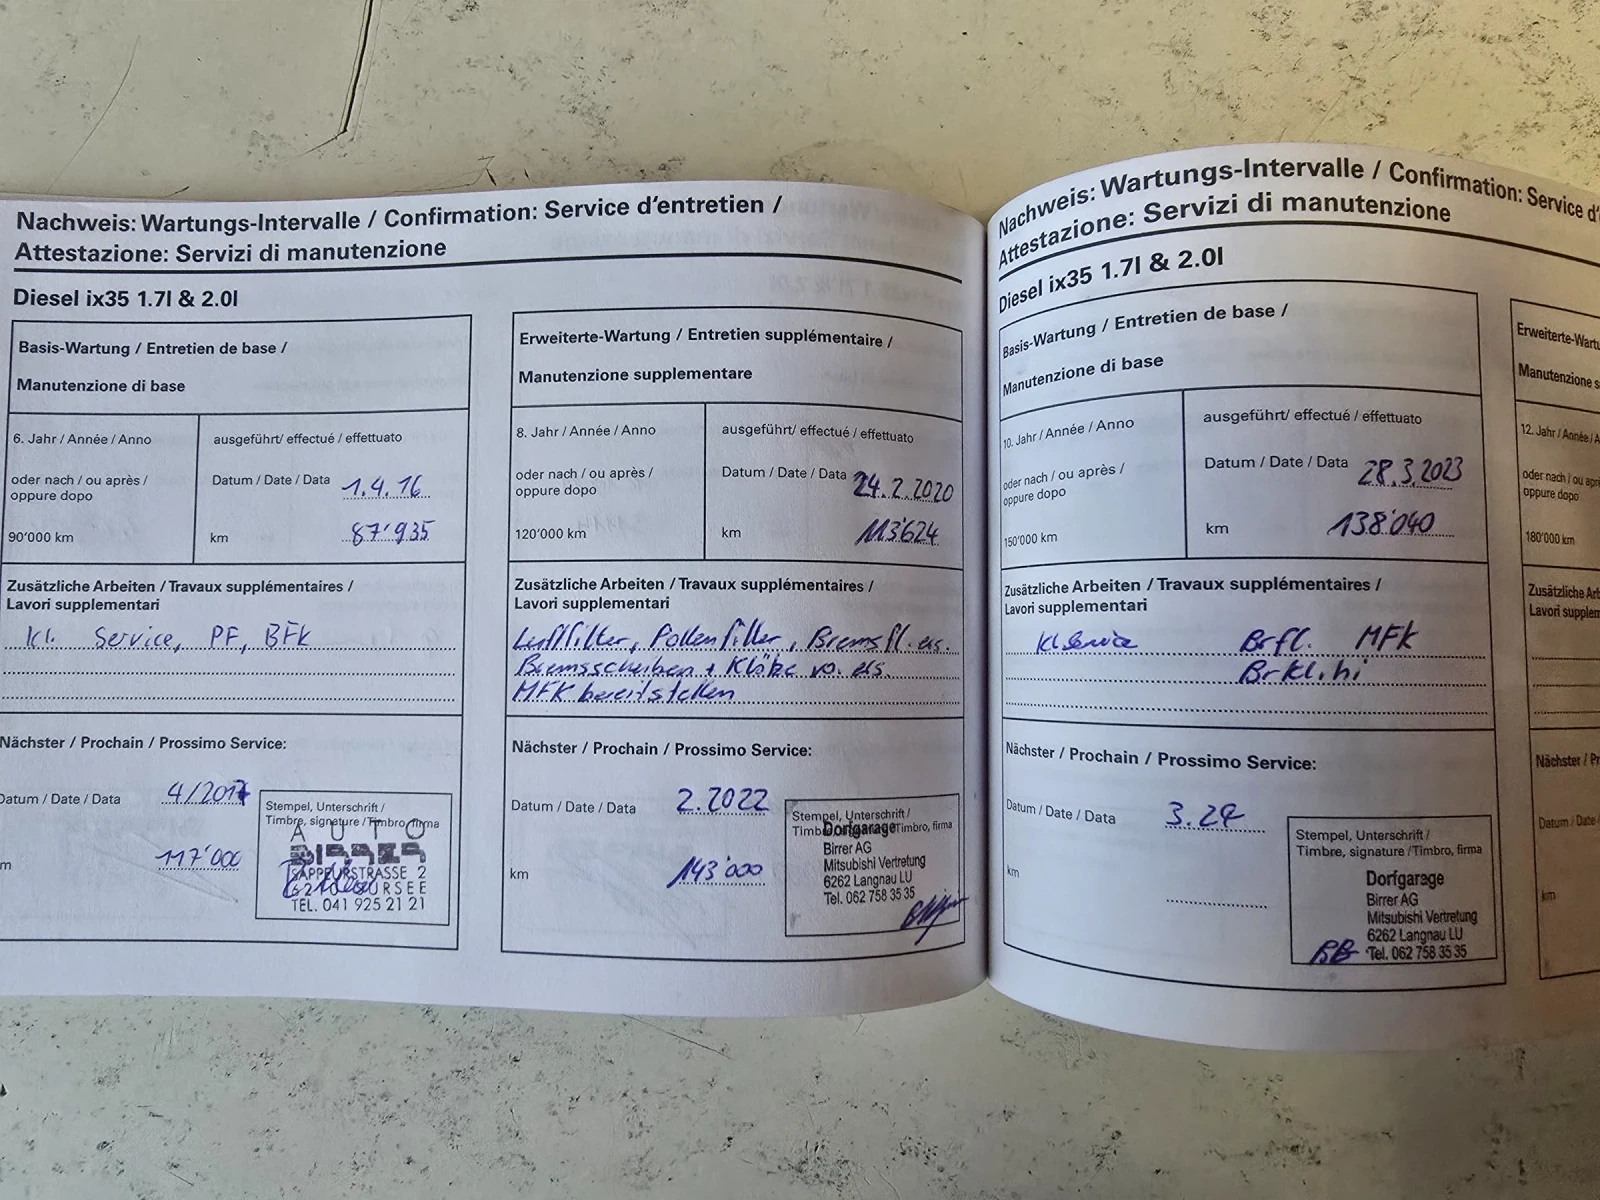 Nachweis: Wartungs-Intervalle / Confirmation: Service d'entretien /
Attestazione: Servizi di manutenzione
Diesel ix35 1.7l & 2.0l
Basis-Wartung / Entretien de base /
Manutenzione di base
6. Jahr / Année / Anno
oder nach / ou après /
oppure dopo
90'000 km
ausgeführt/ effectué / effettuato
Datum / Date / Data 1.4.16
km 87'935
Zusätzliche Arbeiten / Travaux supplémentaires /
Lavori supplementari
Kl. Service, PF, BFK
Nächster / Prochain / Prossimo Service:
Datum / Date / Data 4/2017
117'000
Stempel, Unterschrift /
Timbre, signature / Timbro, firma
AUTO
BIRRER
SAPPEURSTRASSE 2
6210 SURSEE
TEL. 041 925 21 21
Erweiterte-Wartung / Entretien supplémentaire /
Manutenzione supplementare
8. Jahr / Année / Anno
oder nach / ou après /
oppure dopo
120'000 km
ausgeführt/ effectué / effettuato
Datum / Date / Data 24.2.2020
km 113'624
Zusätzliche Arbeiten / Travaux supplémentaires /
Lavori supplementari
Luftfilter, Pollenfilter, Bremsfl. ers.
Bremsscheiben + Klötze vo. ers.
MFK bereitstellen
Nächster / Prochain / Prossimo Service:
Datum / Date / Data 2.2022
km 143'000
Stempel, Unterschrift /
Timbro, firma
Dorfgarage
Birrer AG
Mitsubishi Vertretung
6262 Langnau LU
Tel. 062 758 35 35
Nachweis: Wartungs-Intervalle / Confirmation: Service d'
Attestazione: Servizi di manutenzione
Diesel ix35 1.7l & 2.0l
Basis-Wartung / Entretien de base /
Manutenzione di base
10. Jahr / Année / Anno
oder nach / ou après /
oppure dopo
150'000 km
ausgeführt/ effectué / effettuato
Datum / Date / Data 28.3.2023
km 138'040
Zusätzliche Arbeiten / Travaux supplémentaires /
Lavori supplementari
Kl Service Brfl. MFK
BrKl. hi
Nächster / Prochain / Prossimo Service:
Datum / Date / Data 3.24
km
Stempel, Unterschrift /
Timbre, signature / Timbro, firma
Dorfgarage
Birrer AG
Mitsubishi Vertretung
6262 Langnau LU
BB Tel. 062 758 35 35
Erweiterte-Wartu
Manutenzione s
12. Jahr / Année / A
oder nach / ou apr
oppure dopo
180'000 km
Zusätzliche Arb
Lavori supplem
Nächster / Pr
Datum / Date /
km